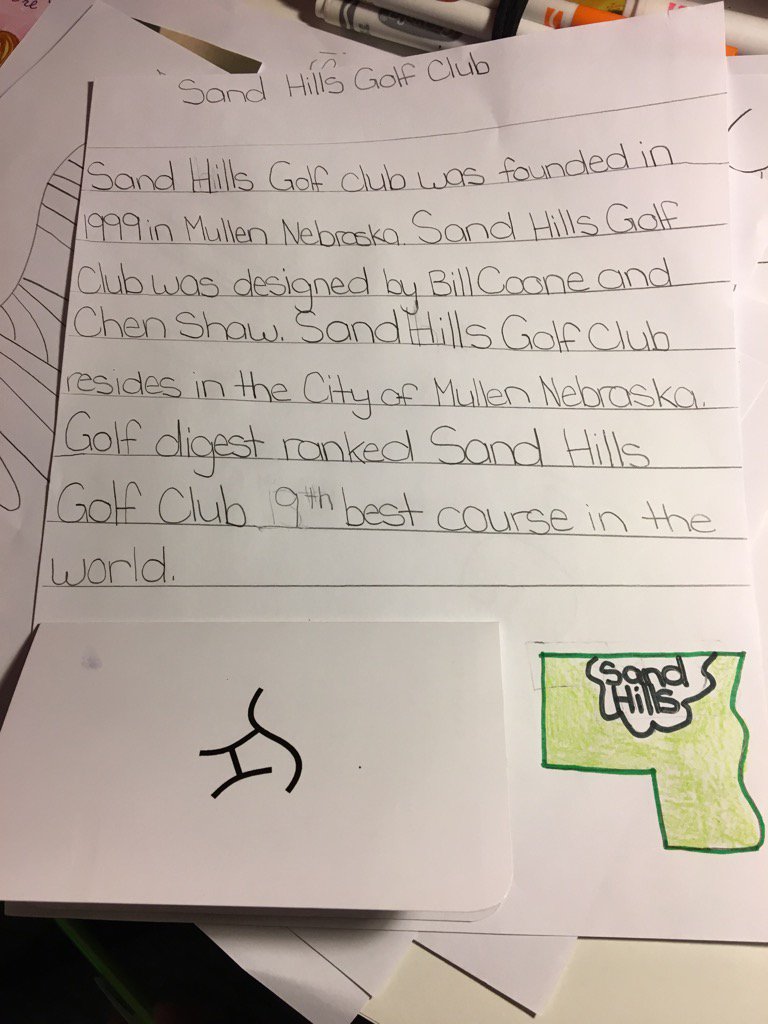 Sand Hills Golf Club
Sand Hills Golf club was founded in
1999 in Mullen Nebraska. Sand Hills Golf
Club was designed by Bill Coone and
Chen Shaw. Sand Hills Golf Club
resides in the City of Mullen Nebraska.
Golf digest ranked Sand Hills
Golf Club 9th best course in the
world.
Sand
Hills